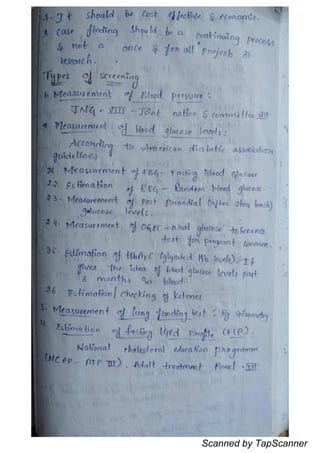 7. It should be cost effective & economic.
8. case finding should be a continuing process
& not a once & for all "project" or
research.
Types of screening
1. Measurement of Blood pressure :
JNC - VIII - Joint nation & committee VIII
2. Measurement of blood glucose levels :
According to American diabetic association
guidelines.
2.1. Measurement of FBG - Fasting Blood glucose
2.2. Estimation of RBG - Random blood glucose.
2.3. Measurement of post prandial (after 2hrs lunch)
glucose levels.
2.4. Measurement of oral glucose tolerance
test for pregnant women.
2.5. Estimation of HbA1C (glycated Hb level). It
gives the idea of blood glucose levels past
3 months in blood.
2.6 Estimation / checking of ketones
3. Measurement of lung function test : By spirometry
4. Estimation of fasting lipid profile (FLP).
National cholesterol education programm
(NCEP - ATP III). Adult treatment Panel - III
Scanned by TapScanner